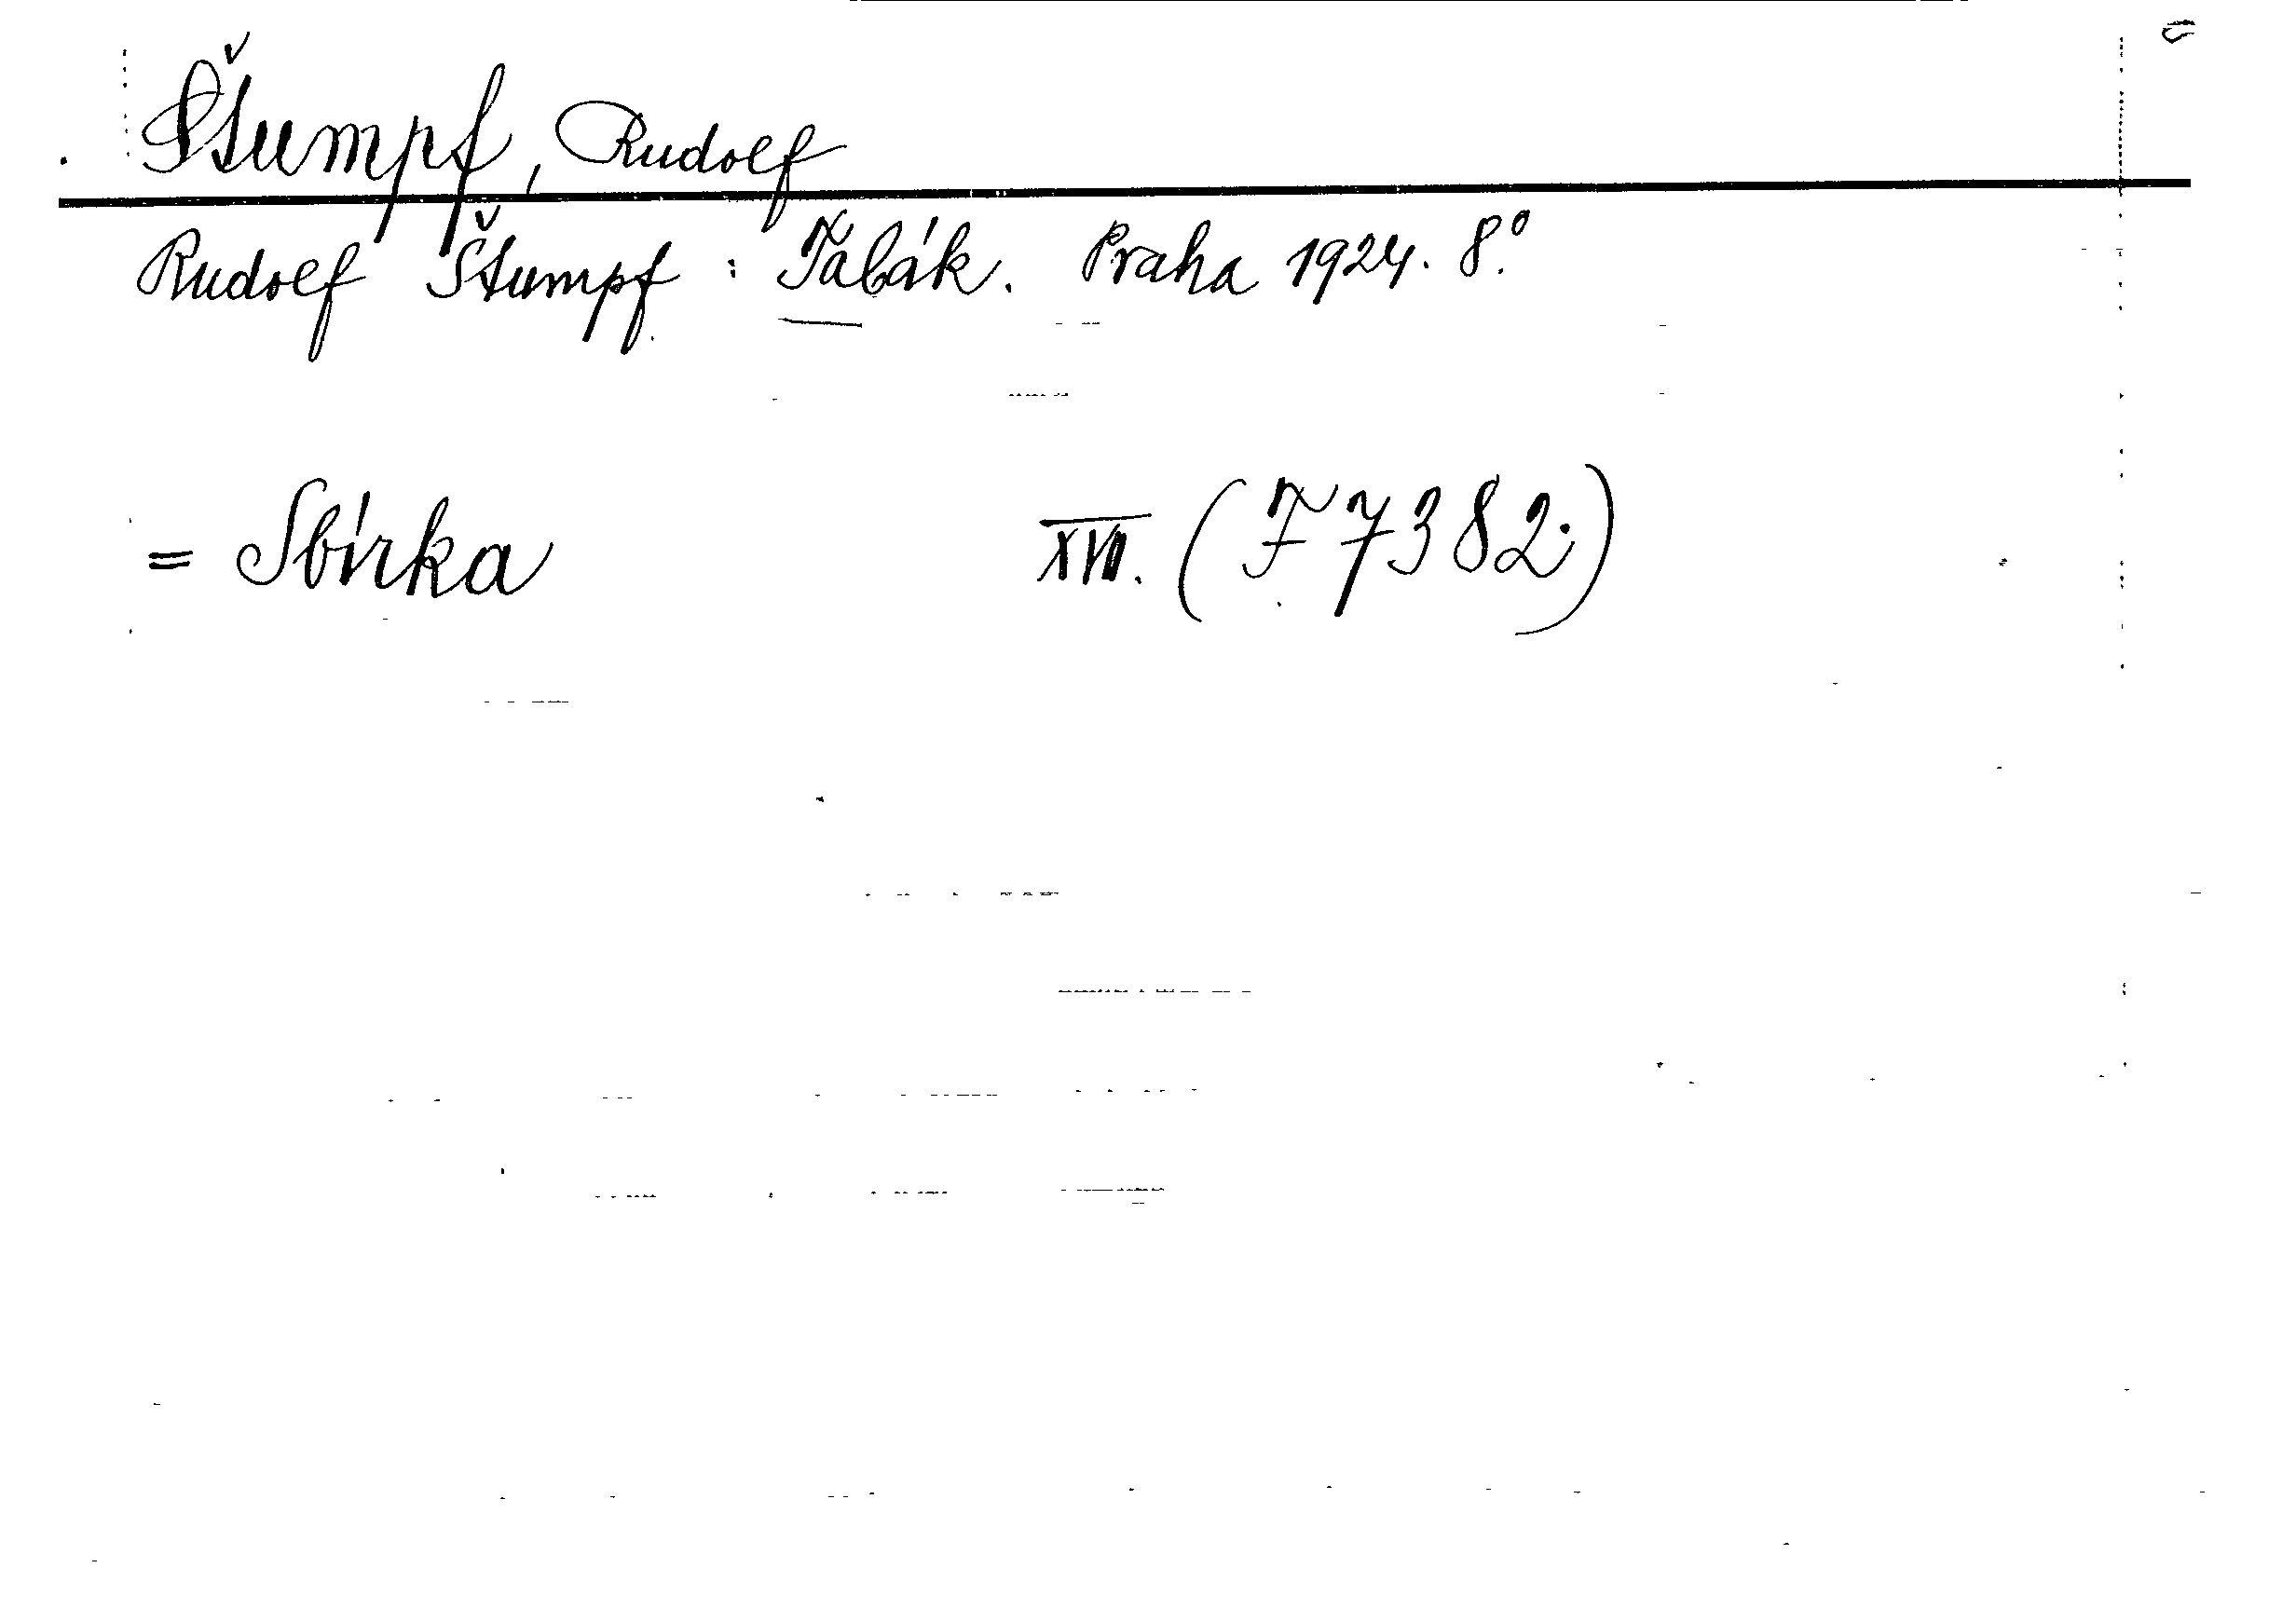 Štumpf, Rudolf
Rudolf Štumpf: Tabák. Praha 1924. 8.º
= Sbírka XVII. (F 7382.)